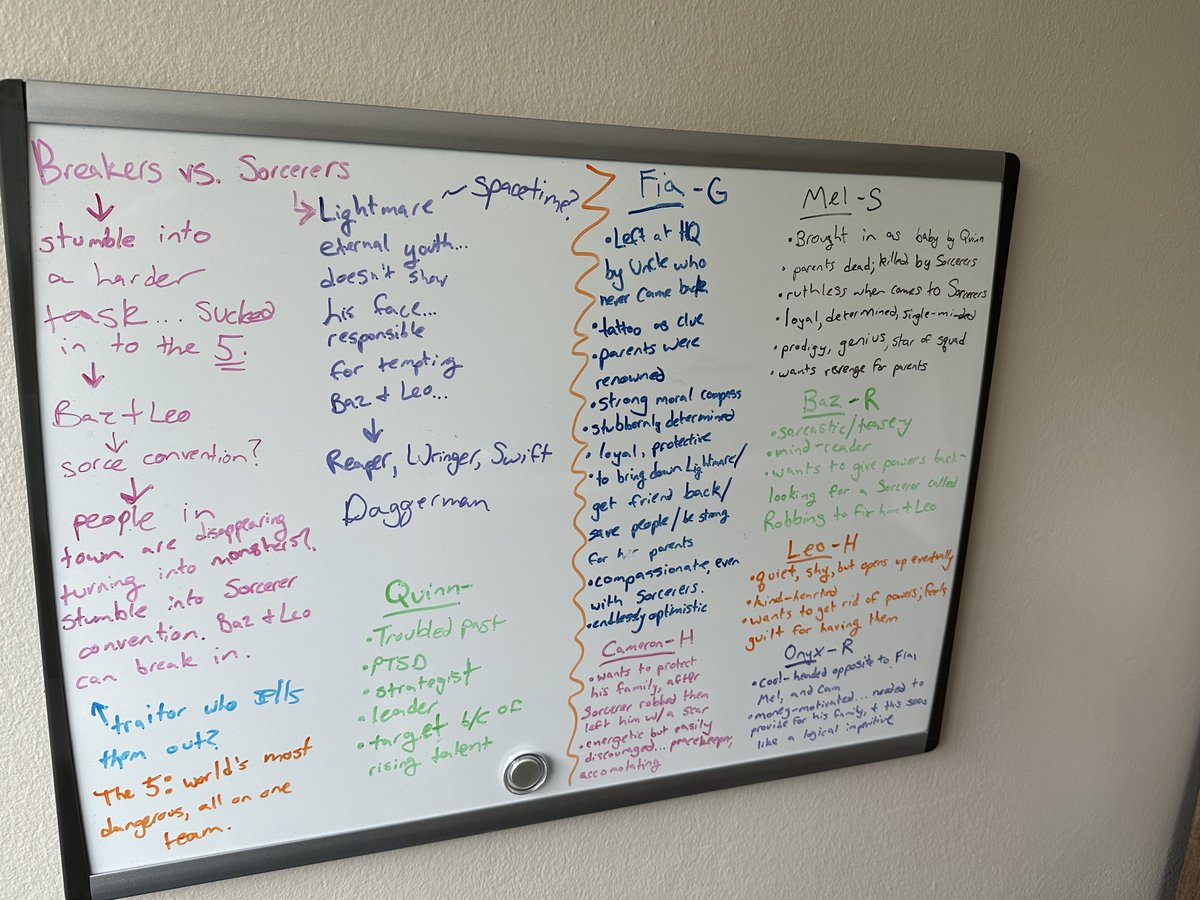 Breakers vs. Sorcerers
stumble into
a harder
task... sucked
in to the 5.
Baz + Leo
sorce convention?
people in
town are disappearing
turning into monsters?.
stumble into Sorcerer
convention. Baz + Leo
can break in.
traitor who sells
them out?
The 5: world's most
dangerous, all on one
team.
Lightmare ~ Spacetime?
eternal youth...
doesn't show
his face...
responsible
for tempting
Baz + Leo...
Reaper, Wringer, Swift
Daggerman
Quinn-
• Troubled past
• PTSD
• strategist
• leader
• target b/c of
rising talent
Fia - G
• Left at HQ
by Uncle who
never came back
• tattoo as clue
• parents were
renowned
• strong moral compass
• stubbornly determined
• loyal, protective
• to bring down Lightmare/
get friend back/
save people/be strong
for her parents
• compassionate, even
with Sorcerers.
• endlessly optimistic
Cameron - H
• wants to protect
his family, after
Sorcerer robbed them
left him w/ a scar
• energetic but easily
discouraged... peacekeeper,
accomotating
Mel - S
• Brought in as baby by Quinn
• parents dead; killed by Sorcerers
• ruthless when comes to Sorcerers
• loyal, determined, single-minded
• prodigy, genius, star of squad
• wants revenge for parents
Baz - R
• sarcastic/tease-y
• mind-reader
• wants to give powers back-
looking for a Sorcerer called
Robbing to fix him + Leo
Leo - H
• quiet, shy, but opens up eventually
• kind-hearted
• wants to get rid of powers; feels
guilt for having them
Onyx - R
• cool-headed opposite to Fia,
Mel, and Cam
• money-motivated... needed to
provide for his family, + this seems
like a logical imperitive